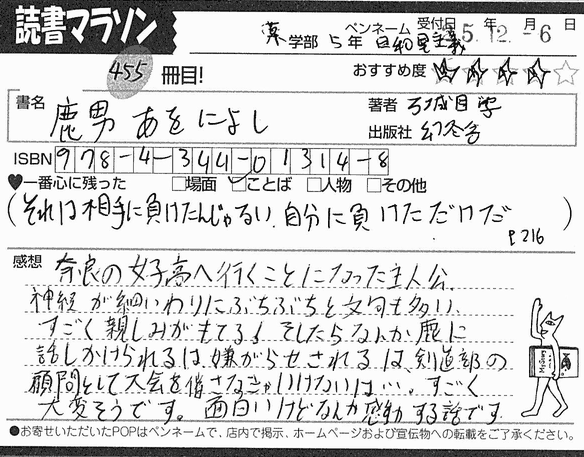 読書マラソン
薬 学部 5年 ペンネーム 日和見主義 受付日 5年12月-6日
455 冊目!
おすすめ度 ★★★★☆
書名 鹿男 あをによし
著者 万城目学
出版社 幻冬舎
ISBN 978-4-344-01314-8
♥一番心に残った □場面 ☑ことば □人物 □その他
(それは相手に負けたんじゃない、自分に負けただけだ)
P.216
感想 奈良の女子高へ行くことになった主人公。
神経が細いわりにぶちぶちと文句も多い、
すごく親しみがもてる! そしたらなんか鹿に
話しかけられるは嫌がらせされるは、剣道部の
顧問として大会を催さなきゃいけないは…。すごく
大変そうです。面白いけどなんか感動する話です。
●お寄せいただいたPOPはペンネームで、店内で掲示、ホームページおよび宣伝物への転載をご了承ください。